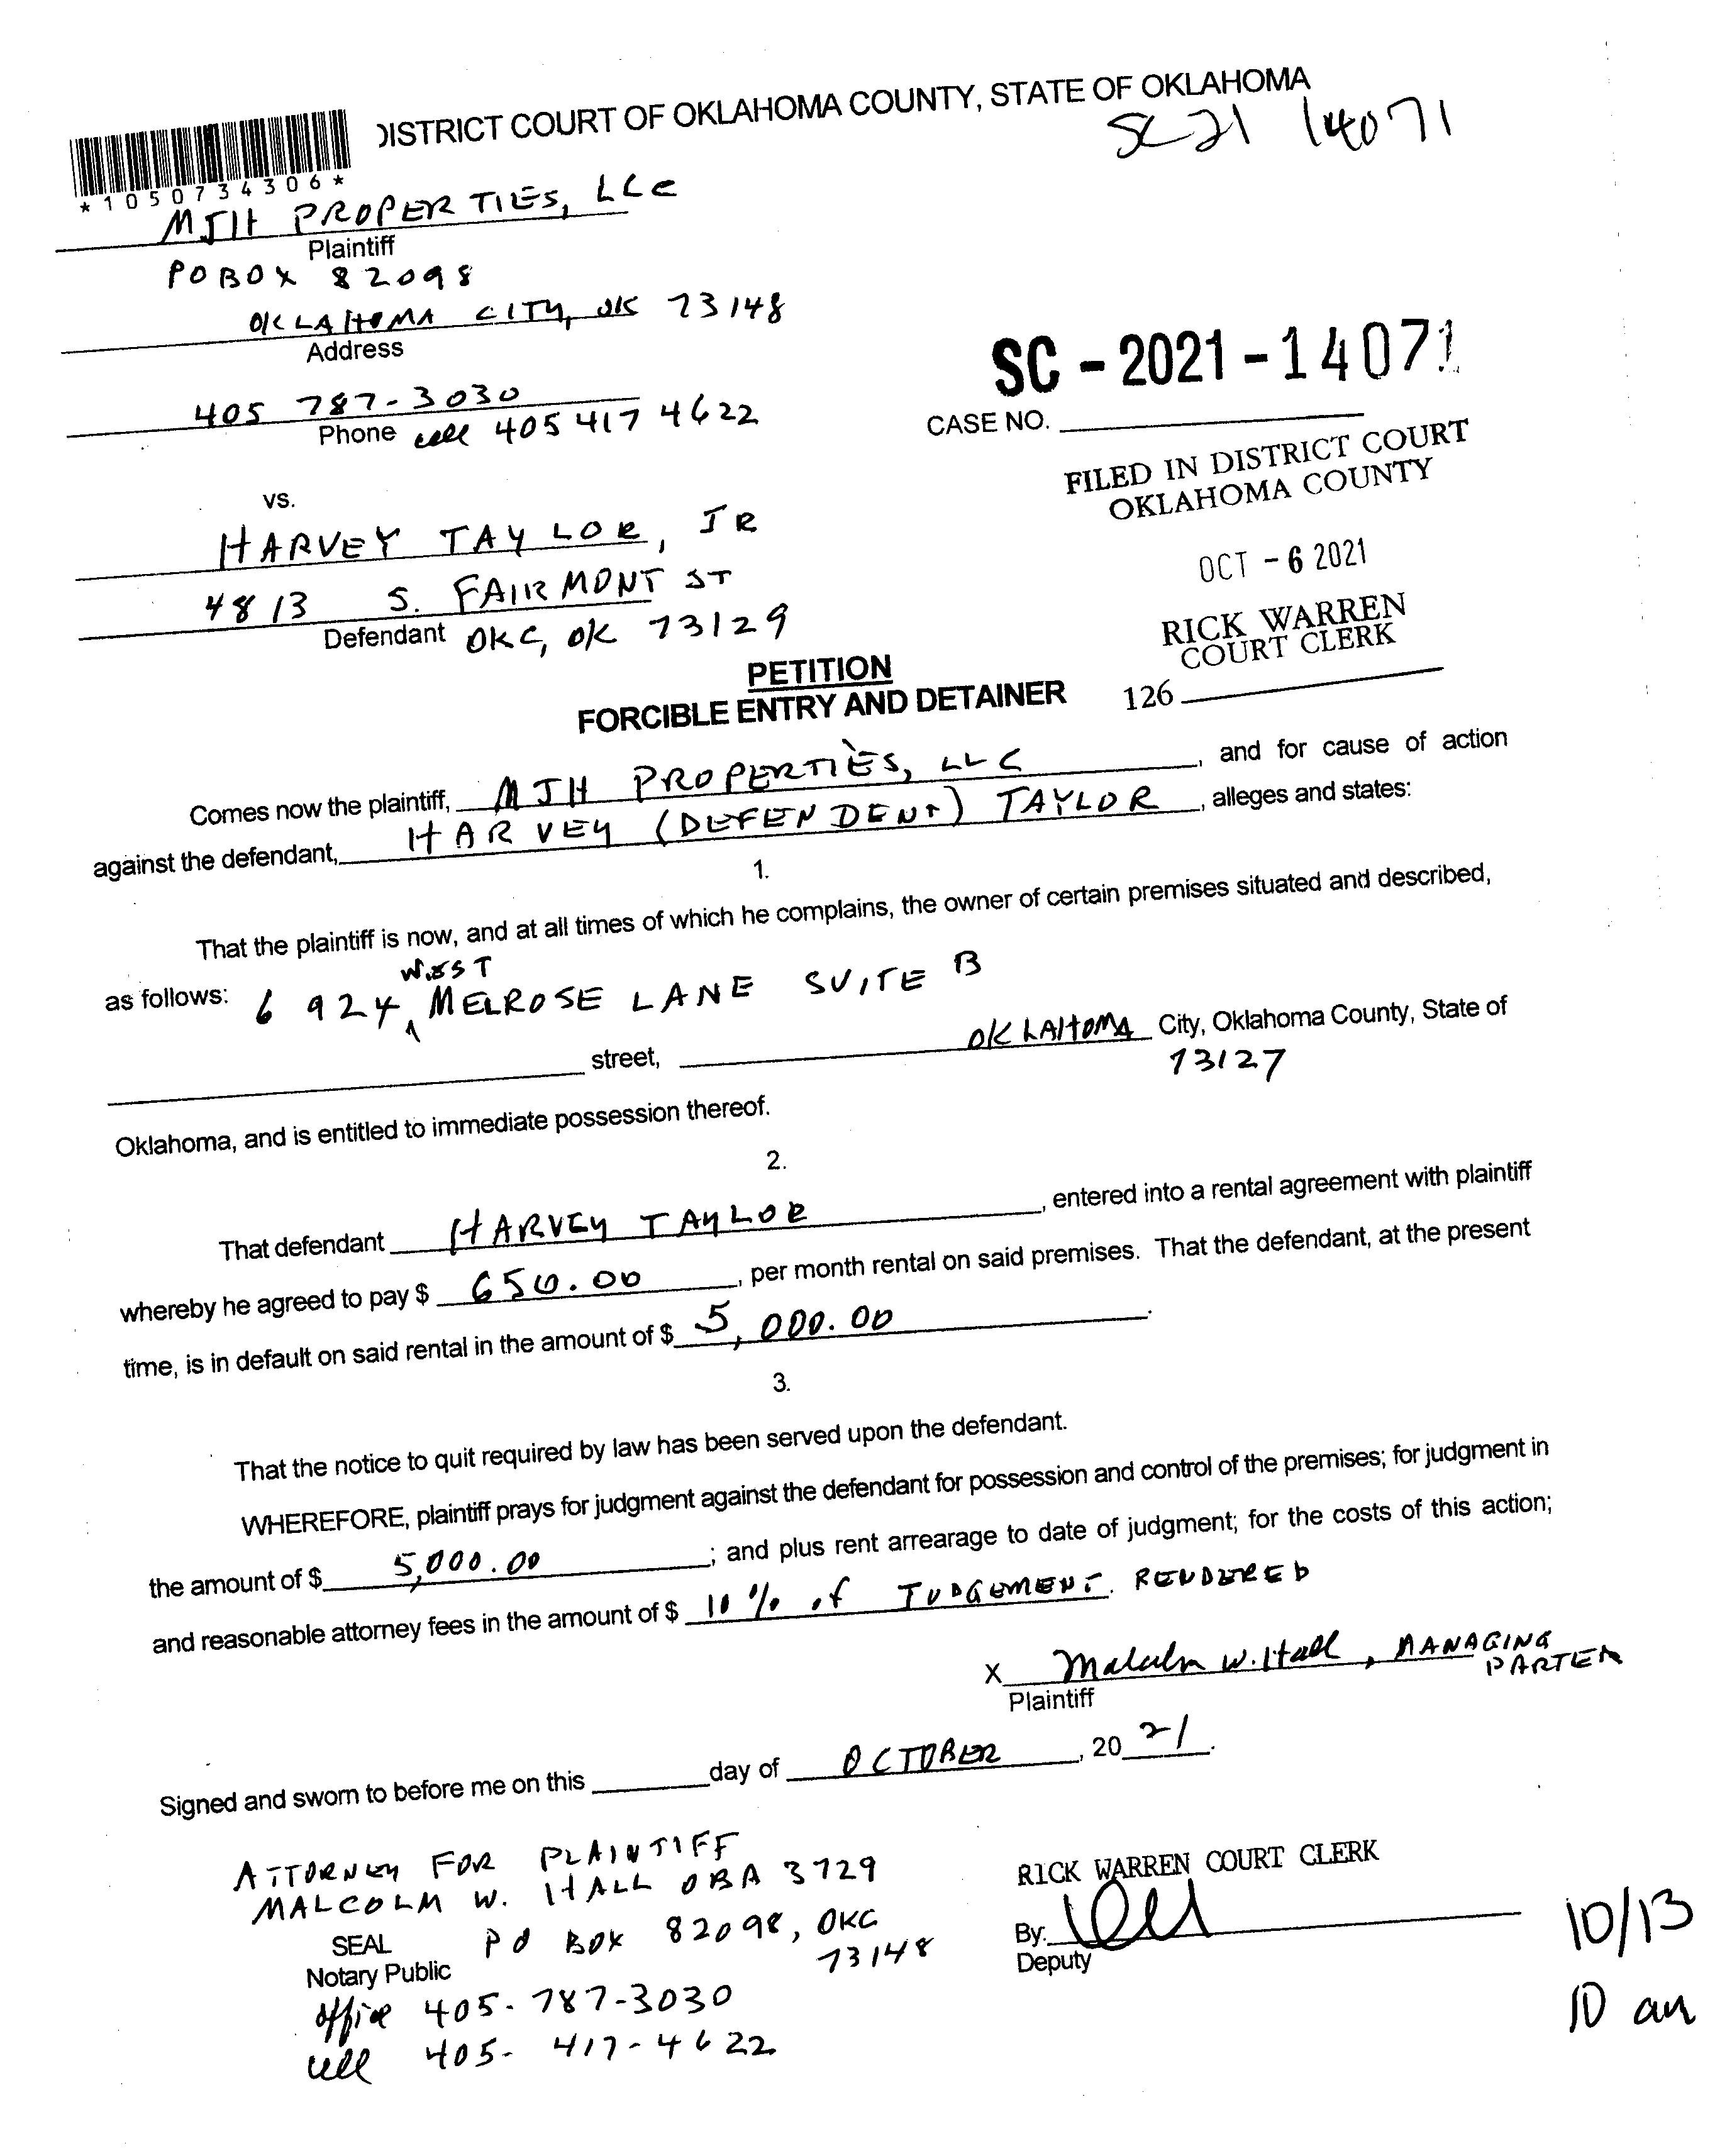 DISTRICT COURT OF OKLAHOMA COUNTY, STATE OF OKLAHOMA
SC 21 14071
*1050734306*
MJH PROPERTIES, LLC
Plaintiff
PO BOX 82098
OKLAHOMA CITY, OK 73148
Address
405 787-3030
Phone cell 405 417 4622
SC - 2021 - 14071
CASE NO.
FILED IN DISTRICT COURT
OKLAHOMA COUNTY
OCT - 6 2021
RICK WARREN
COURT CLERK
126
vs.
HARVEY TAYLOR, JR
4813 S. FAIRMONT ST
Defendant OKC, OK 73129
PETITION
FORCIBLE ENTRY AND DETAINER
Comes now the plaintiff, MJH PROPERTIES, LLC, and for cause of action
against the defendant, HARVEY (DEFENDENT) TAYLOR, alleges and states:
1.
That the plaintiff is now, and at all times of which he complains, the owner of certain premises situated and described,
as follows: 6924 WEST MELROSE LANE SUITE B
street, OKLAHOMA City, Oklahoma County, State of
73127
Oklahoma, and is entitled to immediate possession thereof.
2.
That defendant HARVEY TAYLOR, entered into a rental agreement with plaintiff
whereby he agreed to pay $ 650.00, per month rental on said premises. That the defendant, at the present
time, is in default on said rental in the amount of $ 5,000.00.
3.
That the notice to quit required by law has been served upon the defendant.
WHEREFORE, plaintiff prays for judgment against the defendant for possession and control of the premises; for judgment in
the amount of $ 5,000.00; and plus rent arrearage to date of judgment; for the costs of this action;
and reasonable attorney fees in the amount of $ 10% of JUDGEMENT. RENDERED
X Malcolm W. Hall, MANAGING
PARTER
Plaintiff
Signed and sworn to before me on this day of OCTOBER, 20 21.
ATTORNEY FOR PLAINTIFF
MALCOLM W. HALL OBA 3729
SEAL PO BOX 82098, OKC
Notary Public 73148
office 405-787-3030
cell 405-417-4622
RICK WARREN COURT CLERK
By:
Deputy
10/13
10 am